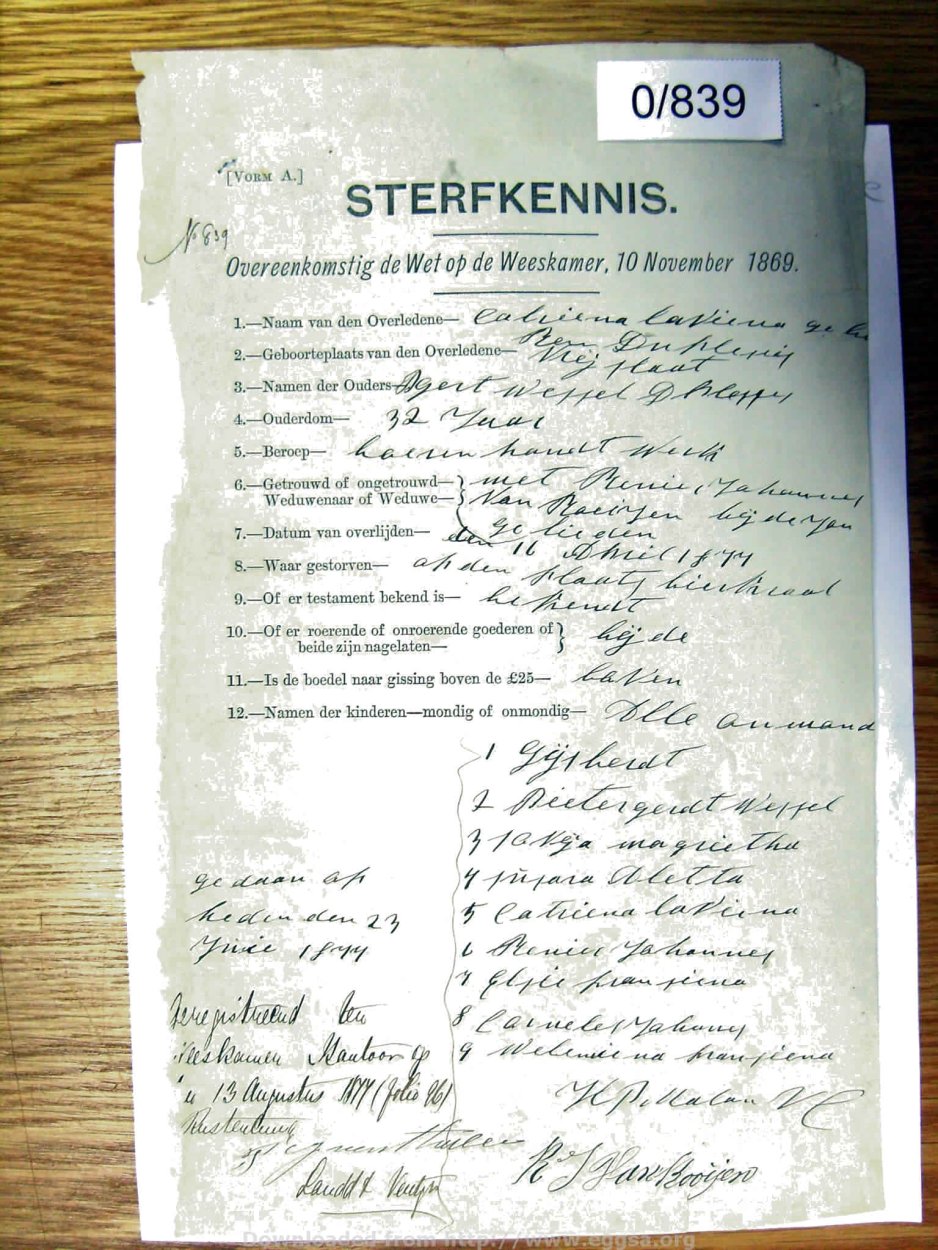 0/839
[VORM A.]
STERFKENNIS.
No 839
Overeenkomstig de Wet op de Weeskamer, 10 November 1869.
1.—Naam van den Overledene— Catriena laviena ge bo
ren Duplesies
2.—Geboorteplaats van den Overledene— Vrij staat
3.—Namen der Ouders— gert Wessel
4.—Ouderdom— 32 Jaar
5.—Beroep— handt Werk
6.—Getrouwd of ongetrouwd— } met Renier Johannes
Weduwenaar of Weduwe— } Van Rooiyen bij de
7.—Datum van overlijden— den 16 April 1877
8.—Waar gestorven— op den plaats bierkraal
9.—Of er testament bekend is— bekendt
10.—Of er roerende of onroerende goederen of } bij de
beide zijn nagelaten—
11.—Is de boedel naar gissing boven de £25— boven
12.—Namen der kinderen—mondig of onmondig— Alle onmond
1 Gijsberdt
2 Pieter gerdt Wessel
3 magrietha
4 Aletta
5 Catriena laviena
6 Renier Johannes
7 Elsie fransiena
8 Johannes
9 Welemiena fransiena
gedaan op
heden den 23
Junie 1877
Geregistreerd ten
Weeskamer Kantoor op
13 Augustus 1877 (folio 96)
Rustenburg
Landdt & Vendr
H P Malan VC
R J Van Rooijen
Downloaded from http://www.eggsa.org